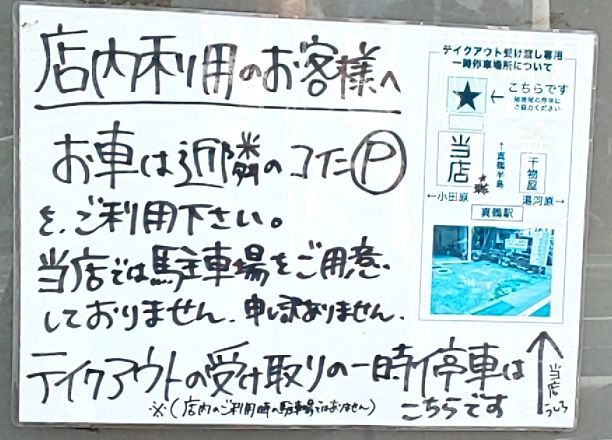 店内利用のお客様へ
お車は近隣のコインⓅ
を、ご利用下さい。
当店では駐車場をご用意
しておりません、申し訳ありません。
テイクアウトの受け取りの一時停車は
こちらです
※(店内のご利用時の駐車場ではありません)
↑
当店
うしろ
テイクアウト受け渡し専用
一時停車場所について
★
←こちらです
短時間の停車に
ご協力ください
当店
↑真鶴半島
干物屋
←小田原
湯河原→
真鶴駅